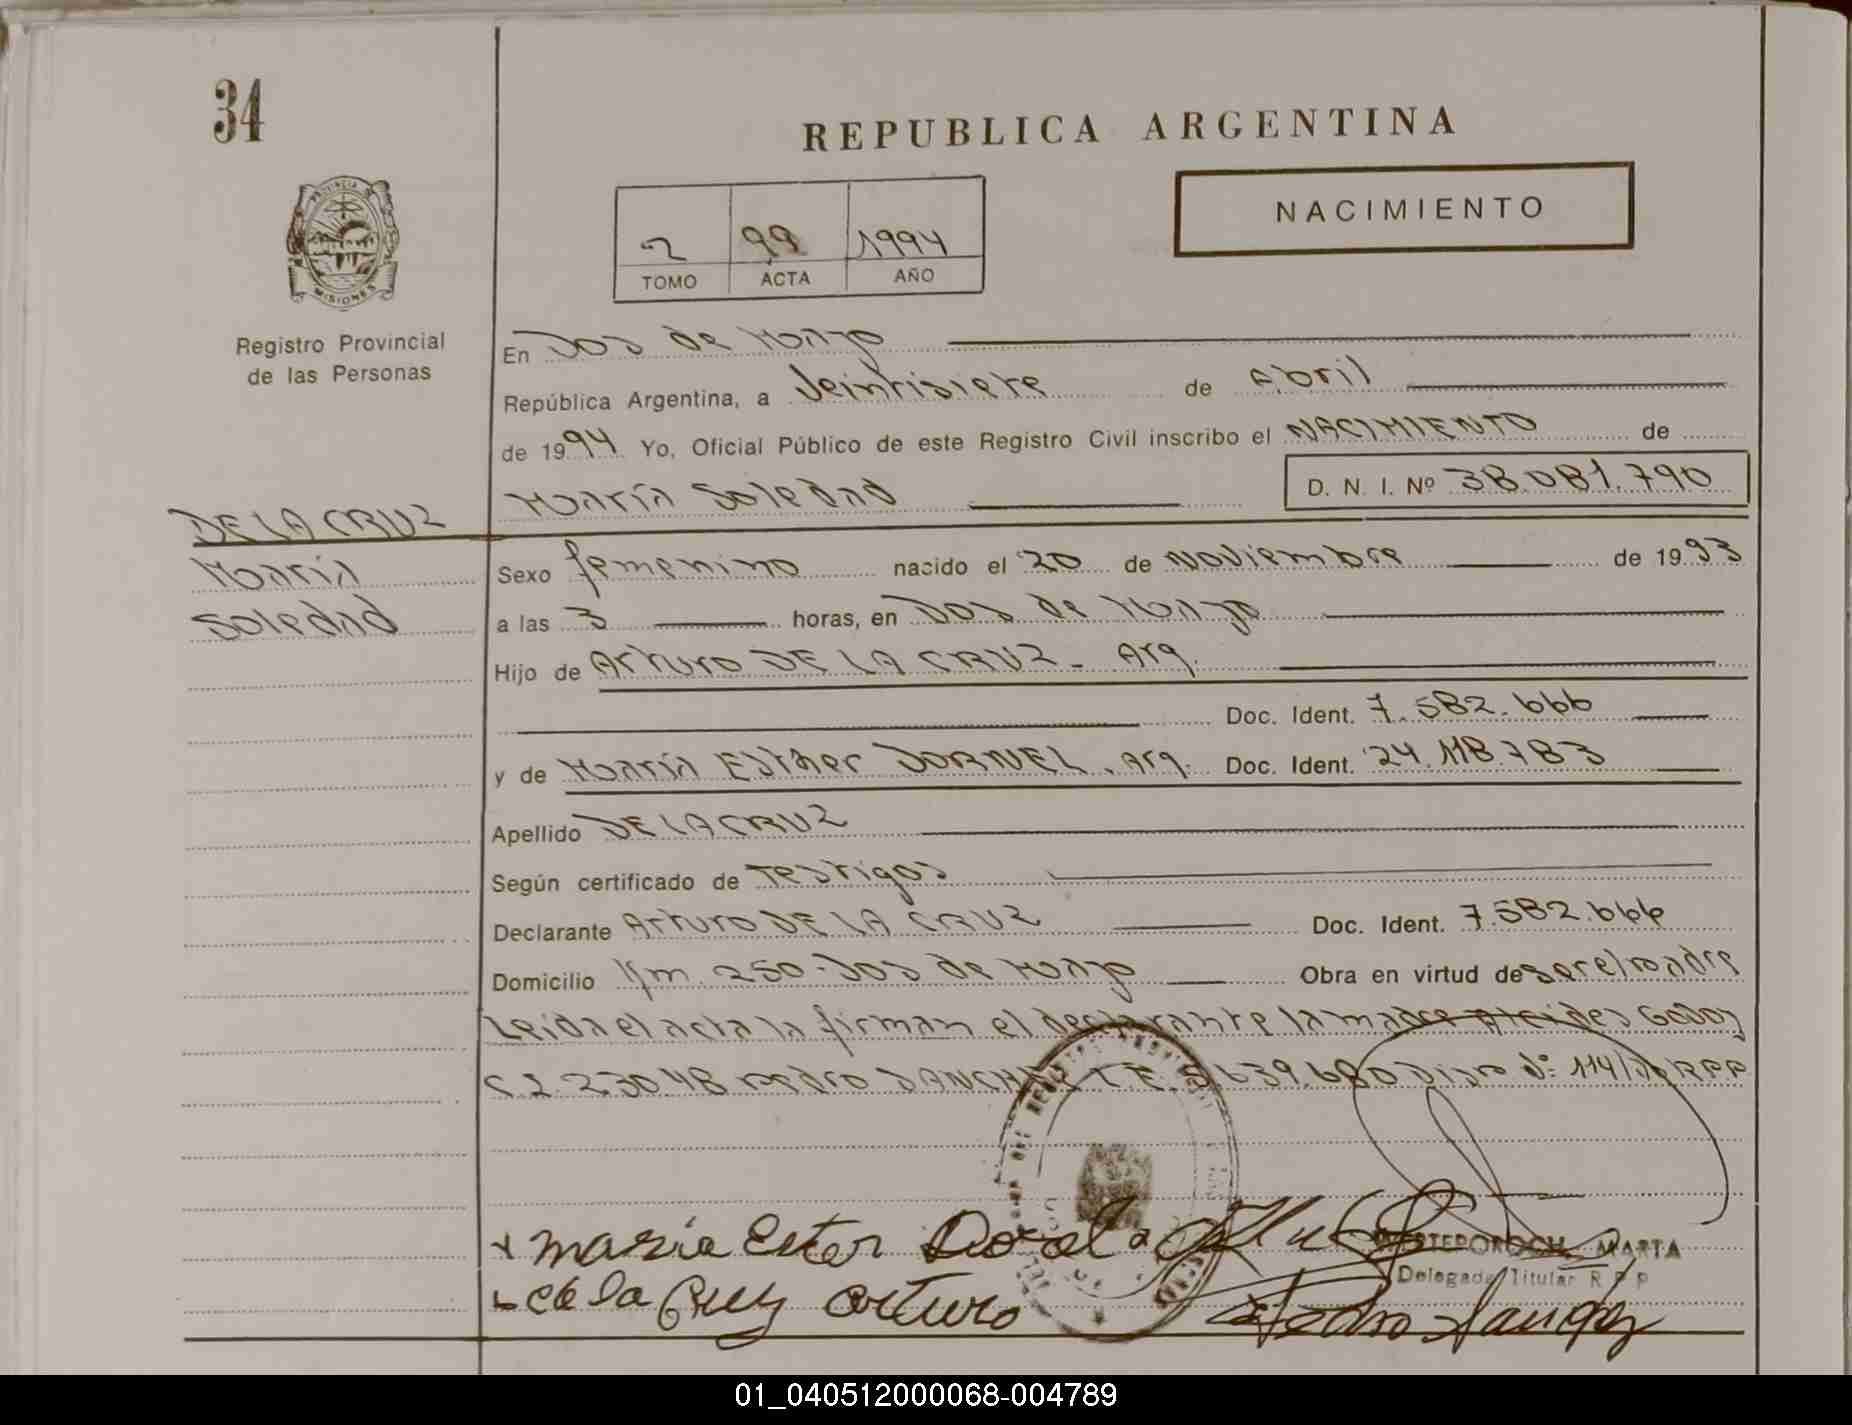 34
REPUBLICA ARGENTINA
NACIMIENTO
2 99 1994
TOMO ACTA AÑO
PROVINCIA DE
MISIONES
Registro Provincial
de las Personas
En Dos de Mayo
República Argentina, a Veintisiete de Abril
de 1994 Yo, Oficial Público de este Registro Civil inscribo el NACIMIENTO de
María Soledad D. N. I. Nº 38.081.790
DE LA CRUZ
María
Soledad
Sexo femenino nacido el 20 de Noviembre de 1993
a las 3 horas, en Dos de Mayo
Hijo de Arturo DE LA CRUZ - Arg.
Doc. Ident. 7.582.666
y de María Esther DORNEL. Arg. Doc. Ident. 24.118.783
Apellido DE LA CRUZ
Según certificado de Testigos
Declarante Arturo DE LA CRUZ Doc. Ident. 7.582.666
Domicilio Km. 250 - Dos de Mayo Obra en virtud de ser el padre
Leida el acta la firman el declarante la madre Alcides Godoy
C.I. 223048 Pedro SANCHEZ L.E. 639.680 Disp Nº 114/ RPP
maria Ester
de la Cruz arturo
Pedro Sanchez
MARTA
Delegada Titular R P P
01_040512000068-004789